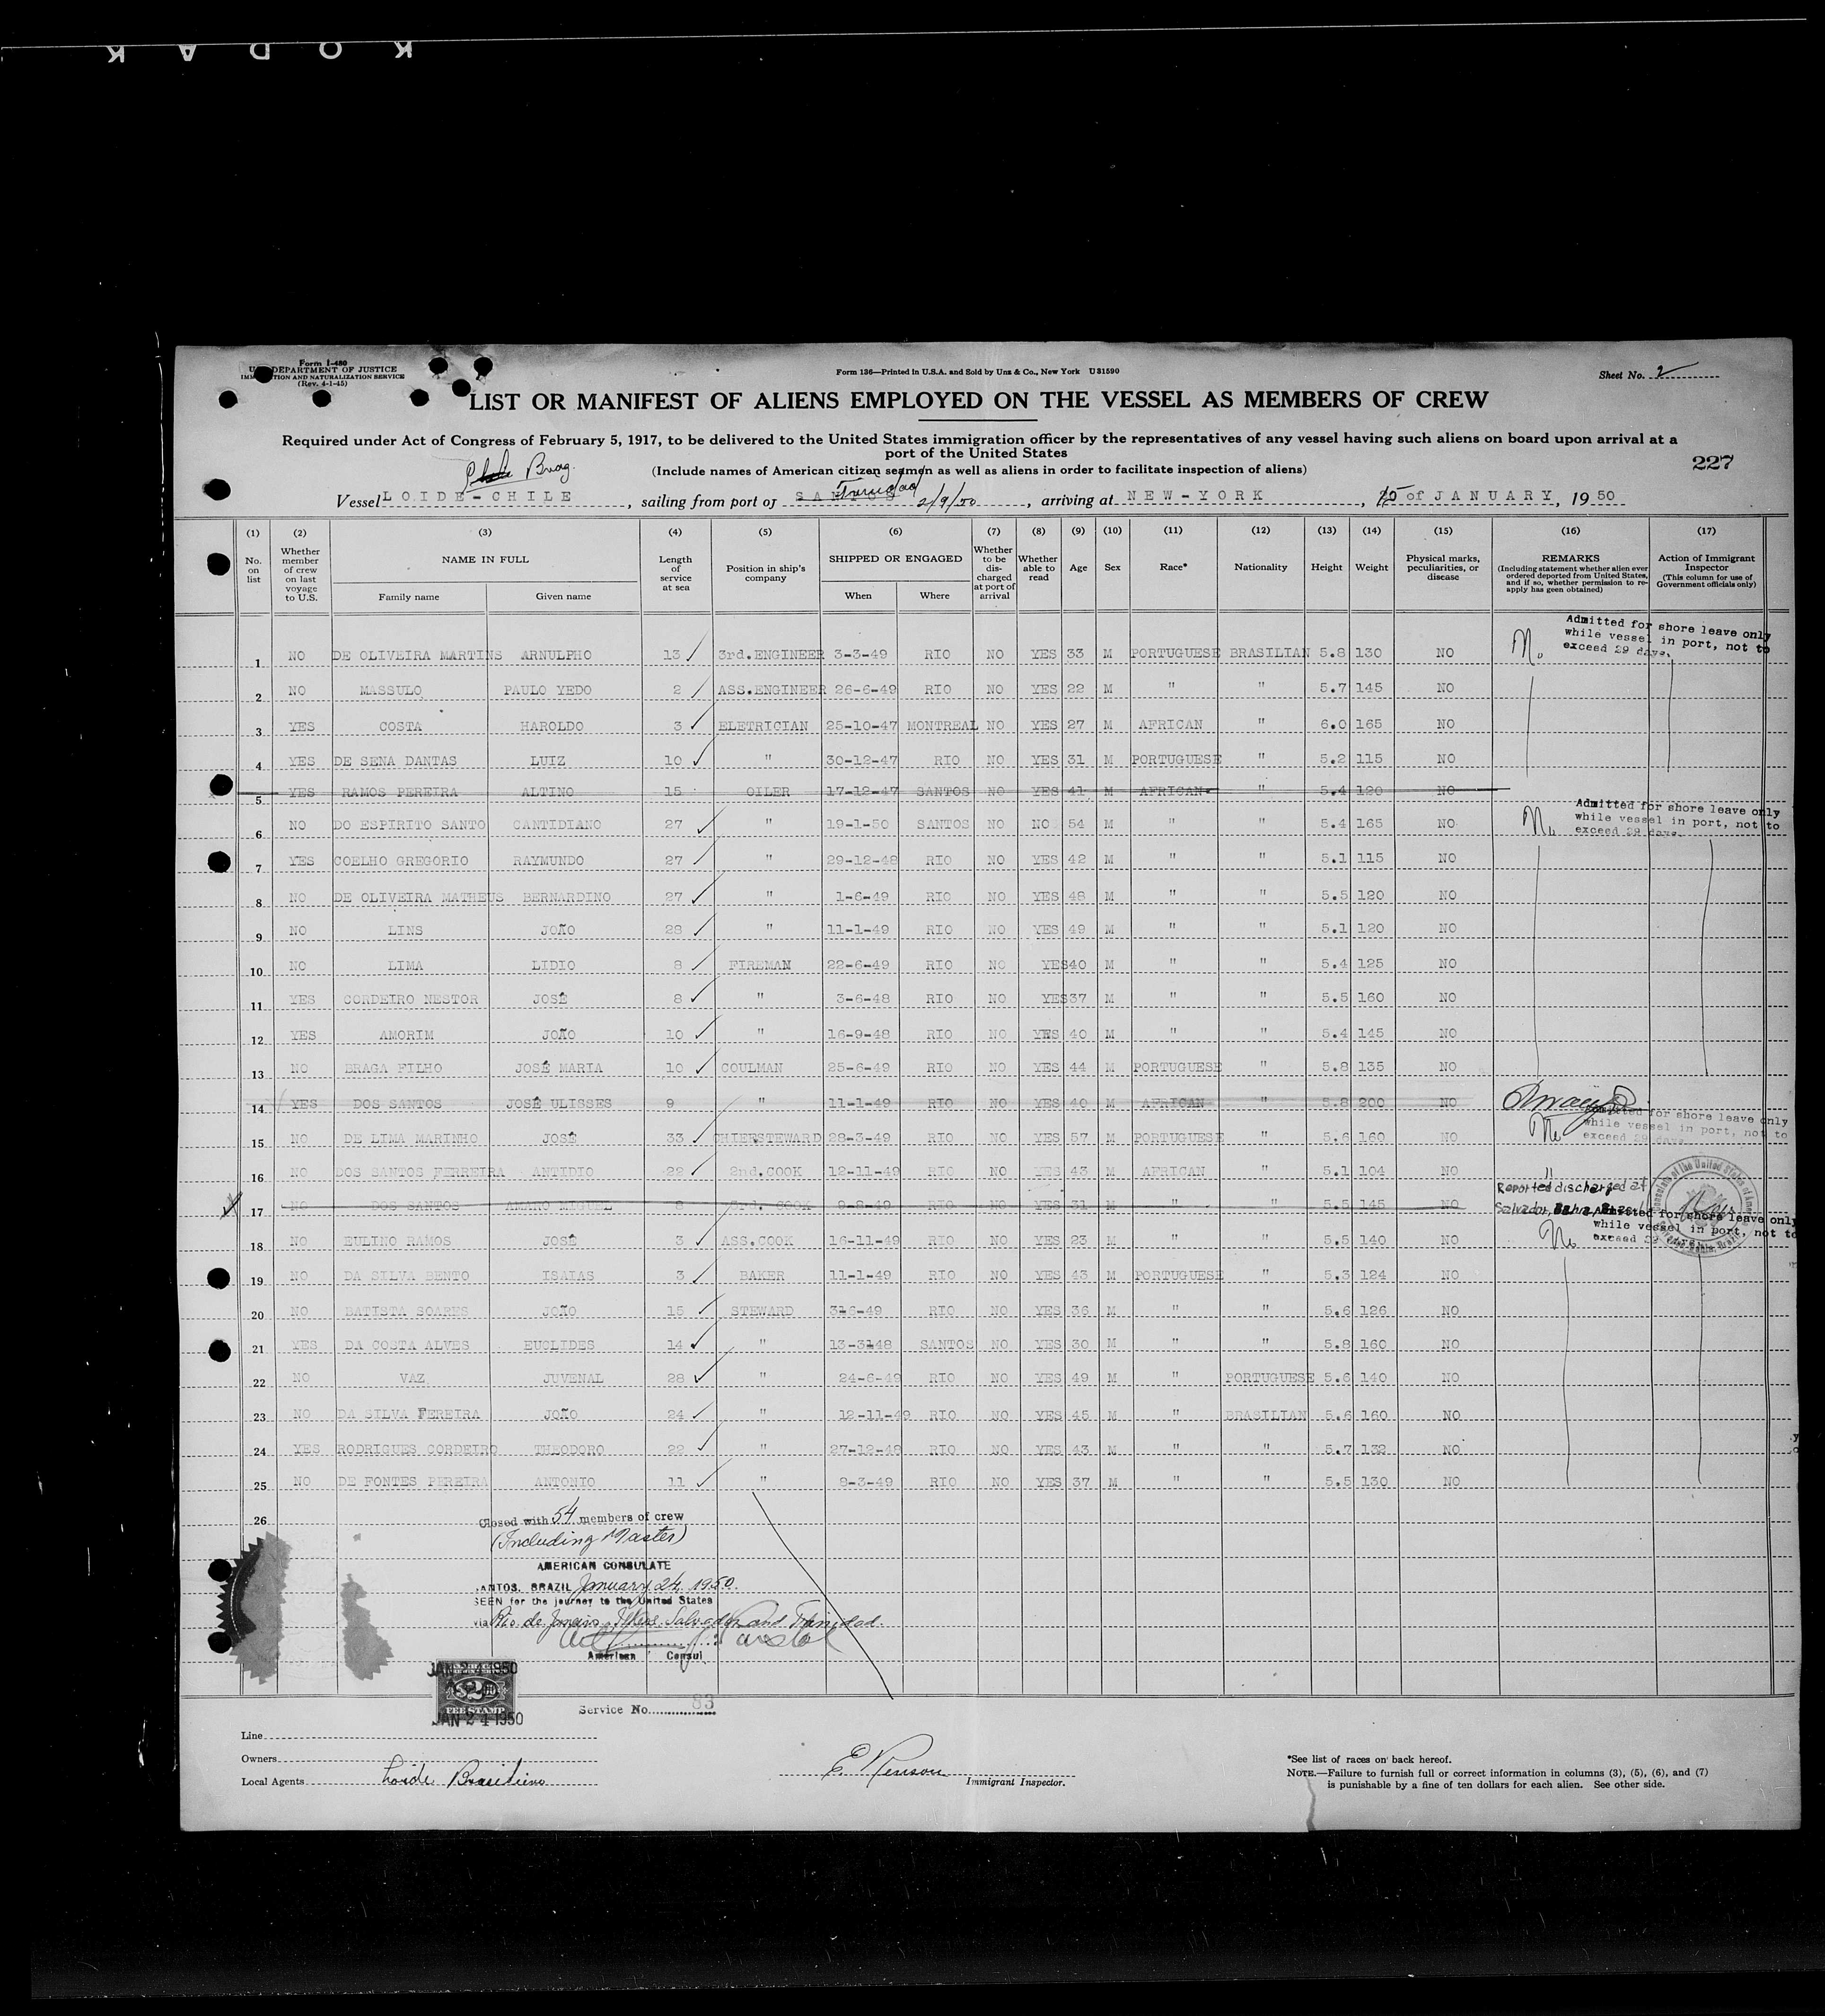 KODAK
Form I-480
U.S. DEPARTMENT OF JUSTICE
IMMIGRATION AND NATURALIZATION SERVICE
(Rev. 4-1-45)
Form 136—Printed in U.S.A. and Sold by Unz & Co., New York U31590
Sheet No. 2
LIST OR MANIFEST OF ALIENS EMPLOYED ON THE VESSEL AS MEMBERS OF CREW
Required under Act of Congress of February 5, 1917, to be delivered to the United States immigration officer by the representatives of any vessel having such aliens on board upon arrival at a
port of the United States
(Include names of American citizen seamen as well as aliens in order to facilitate inspection of aliens)
227
Braz.
Trinidad
Vessel LOIDE-CHILE, sailing from port of SANTOS 2/9/50, arriving at NEW-YORK, of JANUARY, 1950
(1) (2) (3) (4) (5) (6) (7) (8) (9) (10) (11) (12) (13) (14) (15) (16) (17)
No. on list
Whether member of crew on last voyage to U.S.
NAME IN FULL
Family name
Given name
Length of service at sea
Position in ship's company
SHIPPED OR ENGAGED
When
Where
Whether to be discharged at port of arrival
Whether able to read
Age
Sex
Race*
Nationality
Height
Weight
Physical marks, peculiarities, or disease
REMARKS
(Including statement whether alien ever ordered deported from United States, and if so, whether permission to reapply has geen obtained)
Action of Immigrant Inspector
(This column for use of Government officials only)
1 NO DE OLIVEIRA MARTINS ARNULPHO 13 ✓ 3rd.ENGINEER 3-3-49 RIO NO YES 33 M PORTUGUESE BRASILIAN 5.8 130 NO Admitted for shore leave only while vessel in port, not to exceed 29 days.
2 NO MASSULO PAULO YEDO 2 ✓ ASS.ENGINEER 26-6-49 RIO NO YES 22 M " " 5.7 145 NO
3 YES COSTA HAROLDO 3 ✓ ELETRICIAN 25-10-47 MONTREAL NO YES 27 M AFRICAN " 6.0 165 NO
4 YES DE SENA DANTAS LUIZ 10 ✓ " 30-12-47 RIO NO YES 31 M PORTUGUESE " 5.2 115 NO
5 YES RAMOS PEREIRA ALTINO 15 OILER 17-12-47 SANTOS NO YES 41 M AFRICAN " 5.4 120 NO
6 NO DO ESPIRITO SANTO CANTIDIANO 27 ✓ " 19-1-50 SANTOS NO NO 54 M " " 5.4 165 NO Admitted for shore leave only while vessel in port, not to exceed 29 days.
7 YES COELHO GREGORIO RAYMUNDO 27 ✓ " 29-12-48 RIO NO YES 42 M " " 5.1 115 NO
8 NO DE OLIVEIRA MATHEUS BERNARDINO 27 ✓ " 1-6-49 RIO NO YES 48 M " " 5.5 120 NO
9 NO LINS JOÃO 28 ✓ " 11-1-49 RIO NO YES 49 M " " 5.1 120 NO
10 NO LIMA LIDIO 8 ✓ FIREMAN 22-6-49 RIO NO YES 40 M " " 5.4 125 NO
11 YES CORDEIRO NESTOR JOSÉ 8 ✓ " 3-6-48 RIO NO YES 37 M " " 5.5 160 NO
12 YES AMORIM JOÃO 10 ✓ " 16-9-48 RIO NO YES 40 M " " 5.4 145 NO
13 NO BRAGA FILHO JOSÉ MARIA 10 ✓ COULMAN 25-6-49 RIO NO YES 44 M PORTUGUESE " 5.8 135 NO
14 YES DOS SANTOS JOSÉ ULISSES 9 " 11-1-49 RIO NO YES 40 M AFRICAN " 5.8 200 NO
15 NO DE LIMA MARINHO JOSÉ 33 ✓ CHIEFSTEWARD 28-3-49 RIO NO YES 57 M PORTUGUESE " 5.6 160 NO Admitted for shore leave only while vessel in port, not to exceed 29 days
16 NO DOS SANTOS FERREIRA ANTIDIO 22 ✓ 2nd.COOK 12-11-49 RIO NO YES 43 M AFRICAN " 5.1 104 NO "
17 NO DOS SANTOS AMARO MIGUEL 8 3rd. COOK 9-8-49 RIO NO YES 31 M " " 5.5 145 NO Reported discharged at Salvador, Bahia, Brazil
18 NO EULINO RAMOS JOSÉ 3 ✓ ASS.COOK 16-11-49 RIO NO YES 23 M " " 5.5 140 NO Admitted for shore leave only while vessel in port, not to exceed 29
19 NO DA SILVA BENTO ISAIAS 3 ✓ BAKER 11-1-49 RIO NO YES 43 M PORTUGUESE " 5.3 124 NO
20 NO BATISTA SOARES JOÃO 15 ✓ STEWARD 316-49 RIO NO YES 36 M " " 5.6 126 NO
21 YES DA COSTA ALVES EUCLIDES 14 ✓ " 13-3148 SANTOS NO YES 30 M " " 5.8 160 NO
22 NO VAZ JUVENAL 28 ✓ " 24-6-49 RIO NO YES 49 M " PORTUGUESE 5.6 140 NO
23 NO DA SILVA FEREIRA JOÃO 24 ✓ " 12-11-49 RIO NO YES 45 M " BRASILIAN 5.6 160 NO
24 YES RODRIGUES CORDEIRO THEODORO 22 ✓ " 27-12-48 RIO NO YES 43 M " " 5.7 132 NO
25 NO DE FONTES PEREIRA ANTONIO 11 ✓ " 8-3-49 RIO NO YES 37 M " " 5.5 130 NO
26
Closed with 54 members of crew
(Including Master)
AMERICAN CONSULATE
SANTOS, BRAZIL January 24 1950.
SEEN for the journey to the United States
via Rio de Janeiro, Ilheus, Salvador and Trinidad.
American Consul
JAN 24 1950
$2.00
FEE STAMP
JAN 24 1950
Service No. 83
Line
Owners
Local Agents Loide Brasileiro
Immigrant Inspector.
*See list of races on back hereof.
NOTE.—Failure to furnish full or correct information in columns (3), (5), (6), and (7)
is punishable by a fine of ten dollars for each alien. See other side.